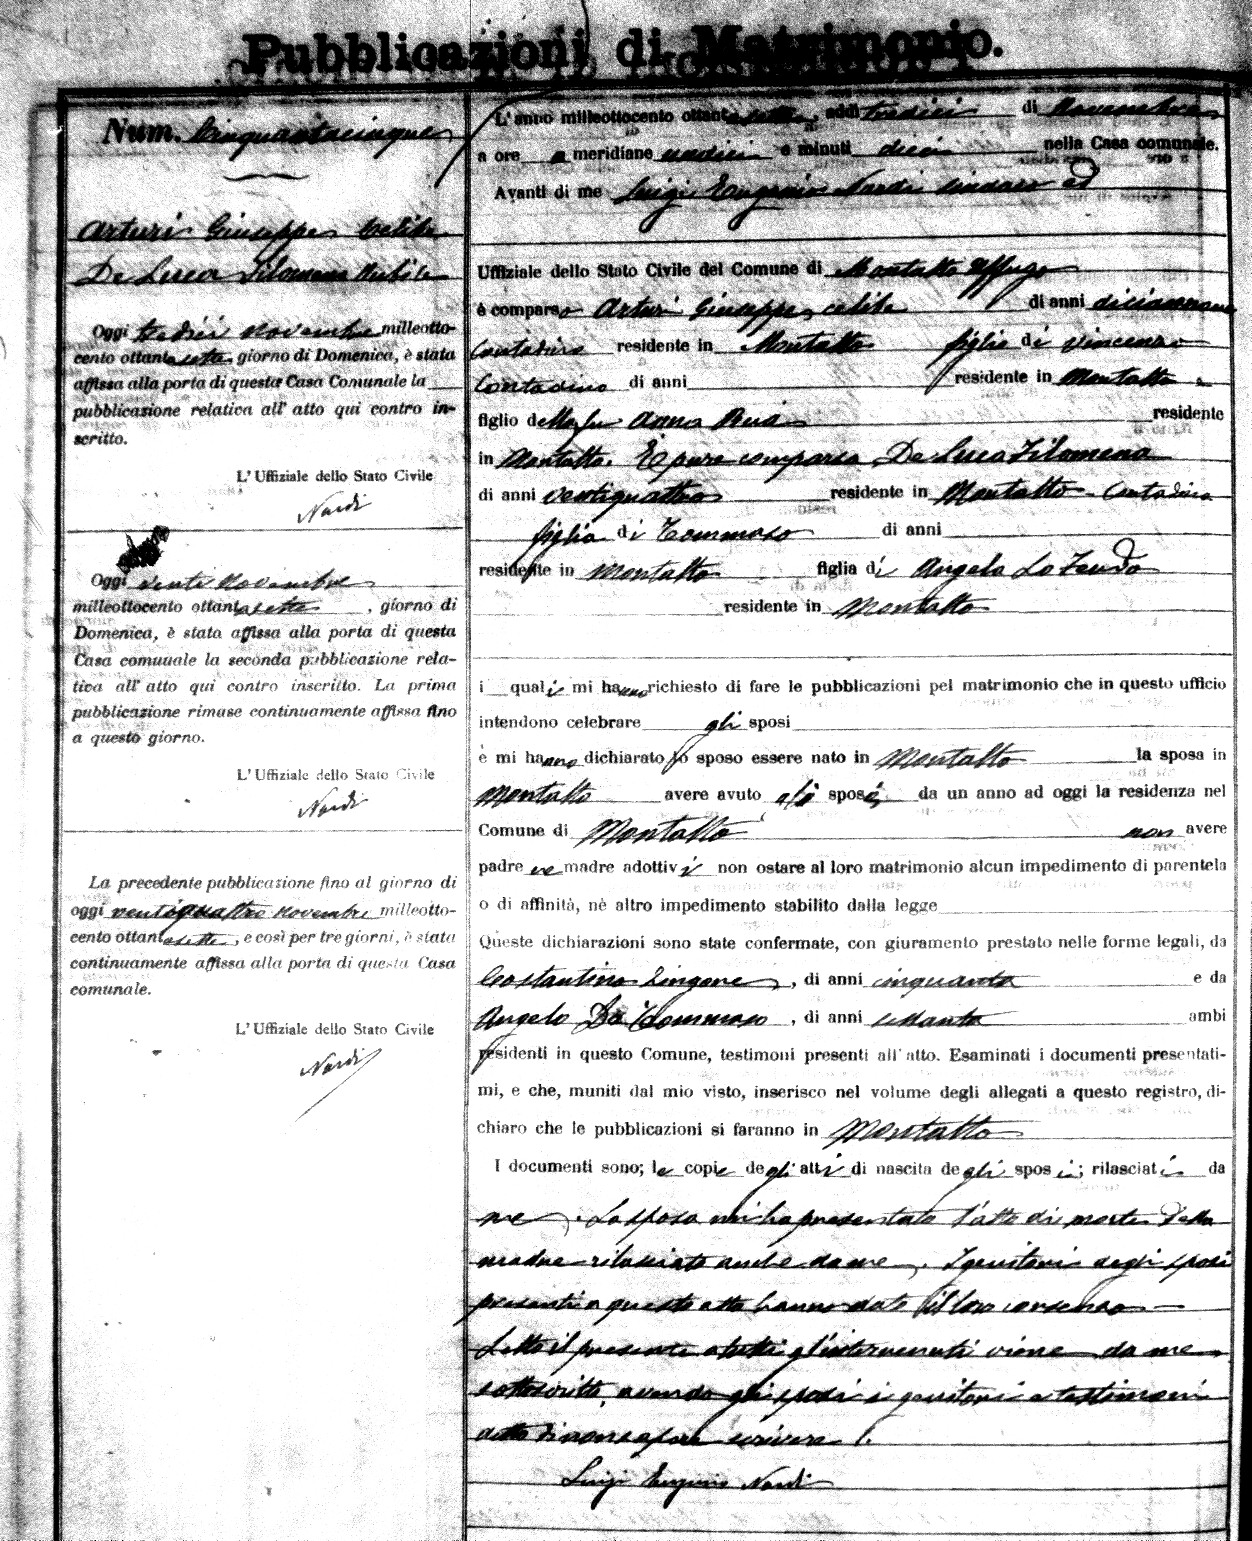 Pubblicazioni di Matrimonio.
Num. Cinquantacinque
Arturi Giuseppe celibe
De Luca Filomena Nubile
Oggi tredici novembre milleotto-
cento ottantasette giorno di Domenica, è stata
affissa alla porta di questa Casa Comunale la
pubblicazione relativa all' atto qui contro in-
scritto.
L' Uffiziale dello Stato Civile
Nardi
Oggi venti Novembre
milleottocento ottantasette, giorno di
Domenica, è stata affissa alla porta di questa
Casa comunale la seconda pubblicazione rela-
tiva all' atto qui contro inscritto. La prima
pubblicazione rimase continuamente affissa fino
a questo giorno.
L' Uffiziale dello Stato Civile
Nardi
La precedente pubblicazione fino al giorno di
oggi ventiquattro novembre milleotto-
cento ottantasette, e così per tre giorni, è stata
continuamente affissa alla porta di questa Casa
comunale.
L' Uffiziale dello Stato Civile
Nardi
L' anno milleottocento ottantasette, addì tredici di Novembre
a ore a meridiane undici e minuti dieci nella Casa comunale.
Avanti di me Luigi Eugenio Nardi sindaco ed
Uffiziale dello Stato Civile del Comune di Montalto Uffugo
è comparso Arturi Giuseppe, celibe di anni diciannove
Contadino residente in Montalto figlio di Vincenzo
Contadino di anni residente in Montalto
figlio della fu Anna Rua residente
in Montalto. È pure comparsa De Luca Filomena
di anni ventiquattro residente in Montalto Contadina
figlia di Tommaso di anni
residente in Montalto figlia di Angela Lo Feudo
residente in Montalto
i quali mi hanno richiesto di fare le pubblicazioni pel matrimonio che in questo ufficio
intendono celebrare gli sposi
e mi hanno dichiarato lo sposo essere nato in Montalto la sposa in
Montalto avere avuto gli sposi da un anno ad oggi la residenza nel
Comune di Montalto non avere
padre ne madre adottivi non ostare al loro matrimonio alcun impedimento di parentela
o di affinità, nè altro impedimento stabilito dalla legge
Queste dichiarazioni sono state confermate, con giuramento prestato nelle forme legali, da
Costantino Zingone, di anni cinquanta e da
Angelo De Tommaso, di anni ambi
residenti in questo Comune, testimoni presenti all' atto. Esaminati i documenti presentati-
mi, e che, muniti dal mio visto, inserisco nel volume degli allegati a questo registro, di-
chiaro che le pubblicazioni si faranno in Montalto
I documenti sono; le copie degli atti di nascita degli sposi; rilasciati da
me. La sposa mi ha presentato l'atto di morte della
madre rilasciato anche da me. I genitori degli sposi
presenti a questo atto hanno dato il loro consenso
Letto il presente a tutti gl'intervenuti viene da me
sottoscritto, avendo gli sposi i genitori e testimoni
detto di non sapere scrivere.
Luigi Eugenio Nardi